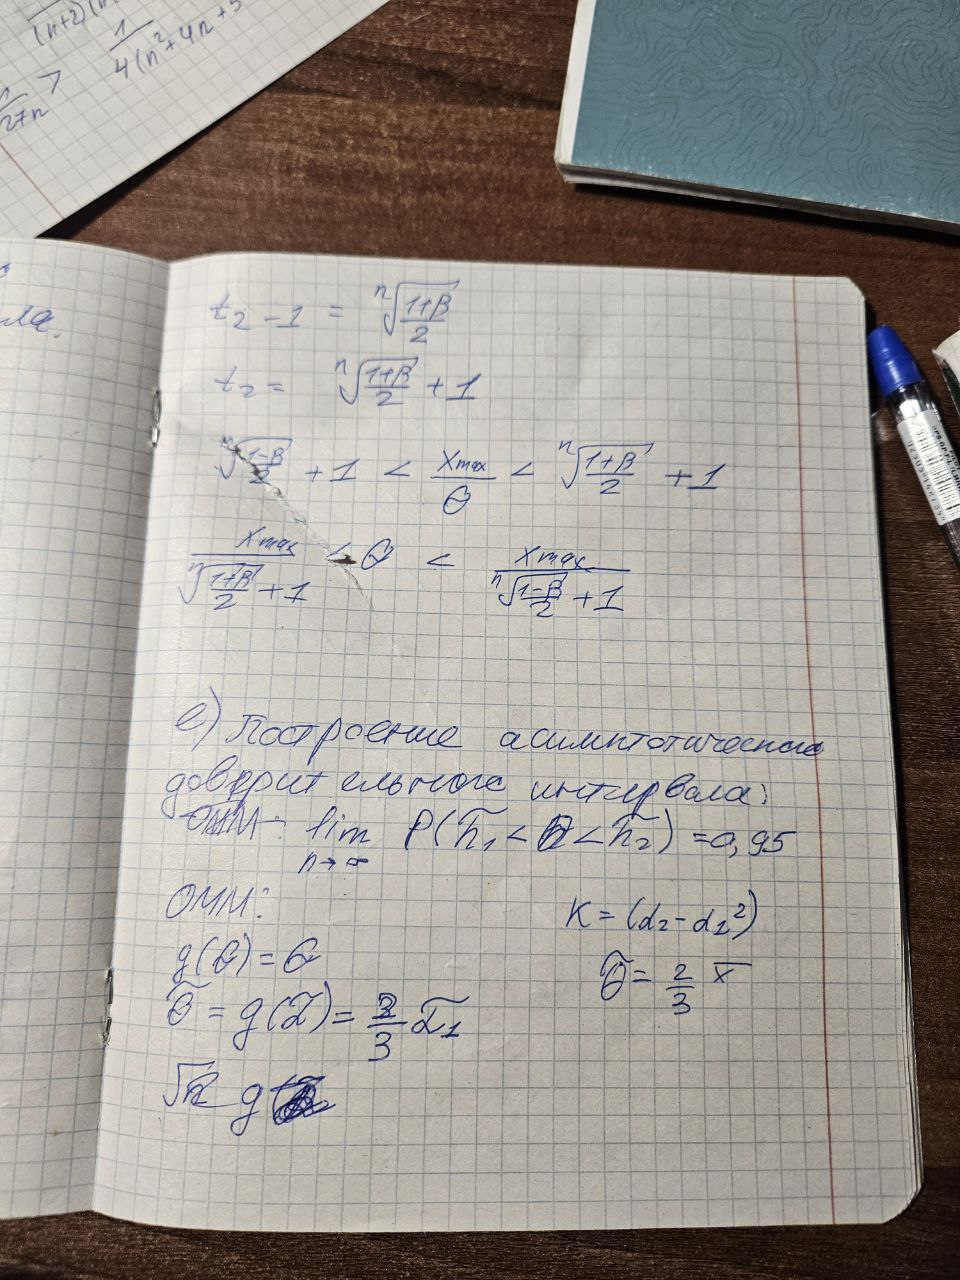 (n+2)(n
1/27n > 1/4(n²+4n+5
ла.
t₂ - 1 = ⁿ√((1+β)/2)
t₂ = ⁿ√((1+β)/2) + 1
ⁿ√((1-β)/2) + 1 < Xmax/θ < ⁿ√((1+β)/2) + 1
Xmax/(ⁿ√((1+β)/2) + 1) < θ < Xmax/(ⁿ√((1-β)/2) + 1)
e) Построение асимптотического
доверительного интервала:
ОММ: lim n→∞ P(h̃₁ < θ < h̃₂) = 0,95
ОММ:
K = (α₂ - α₁²)
g(θ) = θ
θ̃ = 2/3 x̄
θ̃ = g(α̃) = 2/3 α̃₁
√n g(